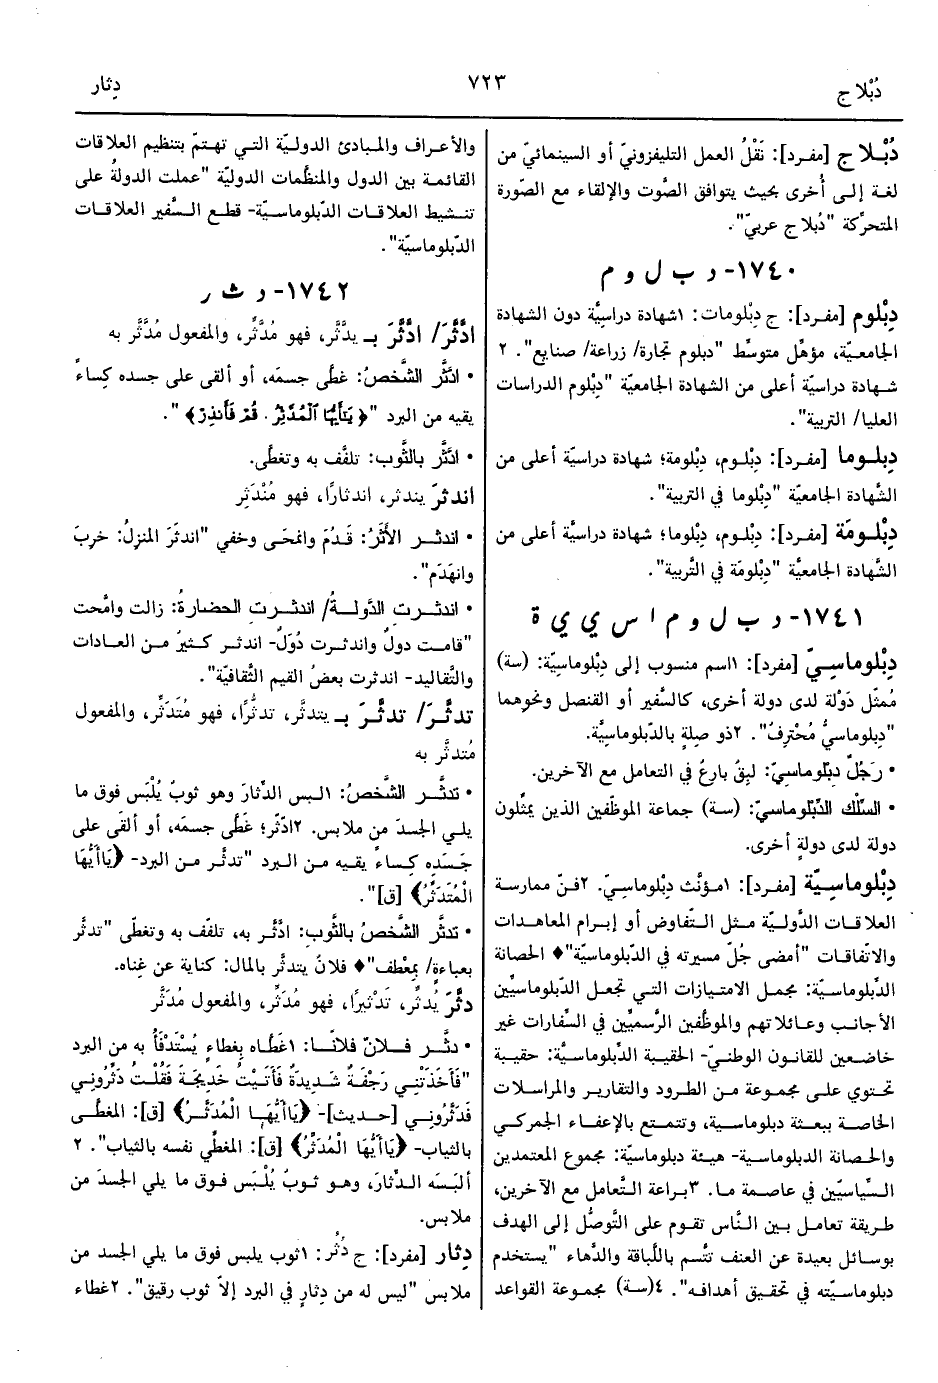 دُبْلاج
٧٢٣
دِثار
دُبْلاج [مفرد]: نَقْلُ العمل التليفزونيّ أو السينمائيّ من
لغة إلى أُخرى بحيث يتوافق الصَّوت والإلقاء مع الصّورة
المتحرِّكة "دُبلاج عربيّ".
١٧٤٠- د ب ل و م
دِبْلوم [مفرد]: ج دِبْلومات: ١شهادة دراسيَّة دون الشهادة
الجامعيَّة، مؤهِّل متوسِّط "دبلوم تجارة/ زراعة/ صنايع". ٢
شهادة دراسيَّة أعلى من الشهادة الجامعيَّة "دِبْلوم الدراسات
العليا/ التربية".
دِبلوما [مفرد]: دِبْلوم، دِبْلومة؛ شهادة دراسيَّة أعلى من
الشَّهادة الجامعيَّة "دِبْلوما في التربية".
دِبْلومَة [مفرد]: دِبْلوم، دِبْلوما؛ شهادة دراسيَّة أعلى من
الشَّهادة الجامعيَّة "دِبْلومَة في التَّربية".
١٧٤١- د ب ل و م ا س ي ي ة
دِبْلوماسيّ [مفرد]: ١اسم منسوب إلى دِبْلوماسيَّة: (سة)
مُمثِّل دَوْلة لدى دولة أخرى، كالسَّفير أو القنصل ونحوهما
"دِبلوماسيٌّ مُحْترِفٌ". ٢ذو صِلةٍ بالدِّبلوماسيَّة.
• رَجُلٌ دِبلوماسيّ: لبِقٌ بارعٌ في التعامل مع الآخرين.
• السِّلْك الدِّبْلوماسيّ: (سة) جماعة الموظفين الذين يمثِّلون
دولة لدى دولةٍ أخرى.
دِبْلوماسيَّة [مفرد]: ١مؤنَّث دِبْلوماسيّ. ٢فنّ ممارسة
العلاقات الدَّوليَّة مثل التَّفاوض أو إبرام المعاهدات
والاتّفاقات "أمضى جُلّ مسيرته في الدِّبلوماسيَّة"♦ الحصانة
الدِّبلوماسيَّة: مجمل الامتيازات التي تجعل الدِّبلوماسيِّين
الأجانب وعائلاتهم والموظَّفين الرَّسميِّين في السِّفارات غير
خاضعين للقانون الوطنيّ- الحقيبة الدِّبلوماسيَّة: حقيبة
تحتوي على مجموعة من الطرود والتقارير والمراسلات
الخاصة ببعثة دبلوماسية، وتتمتع بالإعفاء الجمركي
والحصانة الدبلوماسية- هيئة دبلوماسيَّة: مجموع المعتمدين
السِّياسيِّين في عاصمة ما. ٣براعة التَّعامل مع الآخرين،
طريقة تعامل بين النَّاس تقوم على التَّوصُّل إلى الهدف
بوسائل بعيدة عن العنف تتَّسم باللَّباقة والدَّهاء "يستخدم
دبلوماسيَّته في تحقيق أهدافه". ٤(سة) مجموعة القواعد
والأعراف والمبادئ الدوليَّة التي تهتمّ بتنظيم العلاقات
القائمة بين الدول والمنظَّمات الدوليَّة "عملت الدولةُ على
تنشيط العلاقات الدِّبلوماسيَّة- قطع السَّفير العلاقات
الدِّبلوماسيَّة".
١٧٤٢- د ث ر
ادَّثَّرَ/ ادَّثَّرَ بـ يدَّثَّر، فهو مُدَّثِّر، والمفعول مُدَّثَّر به
• ادَّثَّر الشَّخصُ: غطَّى جسمَه، أو ألقى على جسده كِساءً
يقيه من البرد "﴿يَٰٓأَيُّهَا ٱلۡمُدَّثِّرُ. قُمۡ فَأَنذِرۡ﴾".
• ادَّثَّر بالثَّوب: تلفَّف به وتغطَّى.
اندثرَ يندثر، اندثارًا، فهو مُنْدَثِر
• اندثر الأَثَرُ: قَدُمَ وانمَّحَى وخفي "اندثَرَ المنزلُ: خربَ
وانهَدَم".
• اندثرت الدَّولةُ/ اندثرت الحضارةُ: زالت وامَّحت
"قامت دولٌ واندثرت دُوَلٌ- اندثر كثيرٌ من العادات
والتَّقاليد- اندثرت بعضُ القيم الثَّقافيّة".
تدثَّرَ/ تدثَّرَ بـ يتدثَّر، تدثُّرًا، فهو مُتَدثِّر، والمفعول
مُتدثَّر به
• تدثَّر الشَّخصُ: ١لبس الدِّثارَ وهو ثوبٌ يُلْبَس فوق ما
يلي الجسدَ من ملابس. ٢ادّثّر؛ غَطَّى جسمَه، أو ألقَى على
جَسَدِه كِساءً يقيه من البرد "تدثَّر من البرد- ﴿يَاأَيُّهَا
الْمُتَدَثِّرُ﴾ [ق]".
• تدثَّر الشَّخصُ بالثَّوبِ: ادَّثَّر به، تلفّف به وتغطَّى "تدثَّر
بعباءة/ بمِعْطف"♦ فلانٌ يتدثَّر بالمال: كناية عن غِناه.
دثَّرَ يُدثِّر، تَدْثيرًا، فهو مُدثِّر، والمفعول مُدَثَّر
• دثَّر فلانٌ فلانًا: ١غَطَّاه بِغطاءٍ يُسْتَدْفَأُ به من البرد
"فَأَخَذَتْنِي رَجْفَةٌ شَدِيدَةٌ فَأَتَيْتُ خَدِيجَةَ فَقُلْتُ دَثِّرُونِي
فَدَثَّرُونِي [حديث]- ﴿يَاأَيُّهَا الْمُدَثَّرُ﴾ [ق]: المغطَّى
بالثياب- ﴿يَاأَيُّهَا الْمُدَثِّرُ﴾ [ق]: المغطِّي نفسه بالثياب". ٢
ألبَسَه الدِّثارَ، وهو ثوبٌ يُلْبَس فوق ما يلي الجسدَ من
ملابس.
دِثار [مفرد]: ج دُثُر: ١ثوب يلبس فوق ما يلي الجسد من
ملابس "ليس له من دِثارٍ في البرد إلاّ ثوب رقيق". ٢غطاء